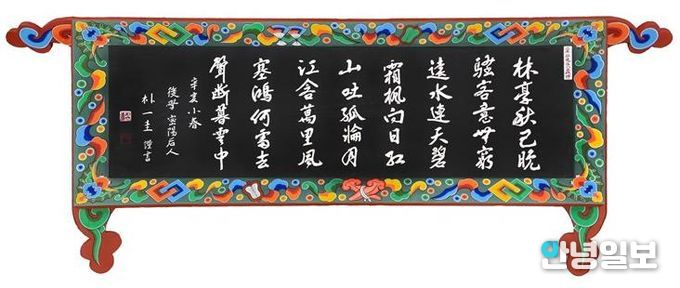 林亭秋已晚
騷客意無窮
遠水連天碧
霜楓向日紅
山吐孤輪月
江含萬里風
塞鴻何處去
聲斷暮雲中
辛亥小春
後學 密陽后人
朴一圭 謹書
안녕일보